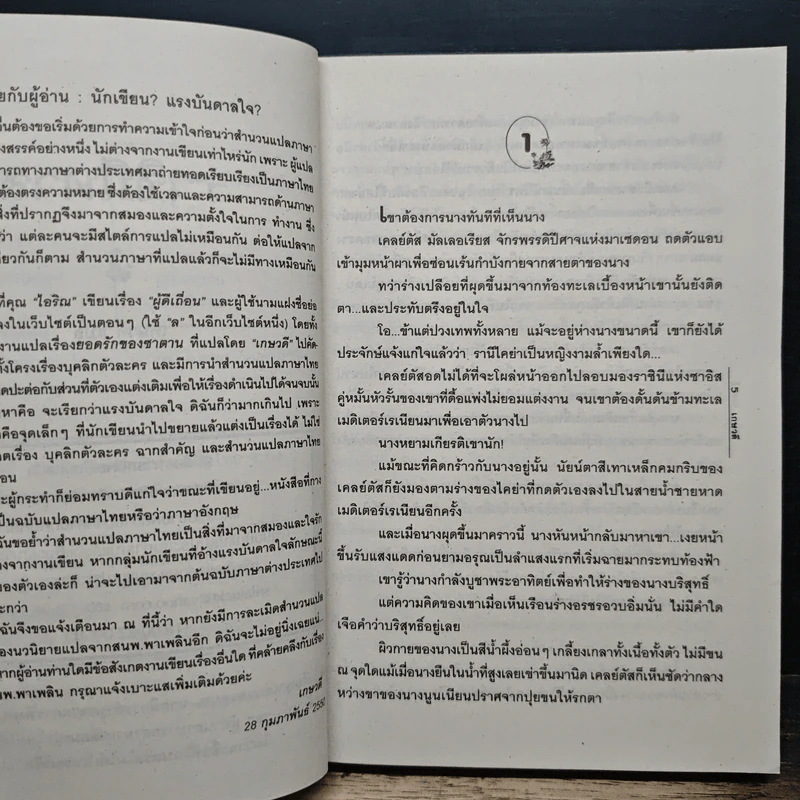 ยกับผู้อ่าน : นักเขียน? แรงบันดาลใจ?
นต้องขอเริ่มด้วยการทำความเข้าใจก่อนว่าสำนวนแปลภาษา
งสรรค์อย่างหนึ่ง ไม่ต่างจากงานเขียนเท่าไหร่นัก เพราะ ผู้แปล
ารถทางภาษาต่างประเทศมาถ่ายทอดเรียบเรียงเป็นภาษาไทย
ต้องตรงความหมาย ซึ่งต้องใช้เวลาและความสามารถด้านภาษา
สิ่งที่ปรากฏจึงมาจากสมองและความตั้งใจในการ ทำงาน ซึ่ง
ว่า แต่ละคนจะมีสไตล์การแปลไม่เหมือนกัน ต่อให้แปลจาก
ดียวกันก็ตาม สำนวนภาษาที่แปลแล้วก็จะไม่มีทางเหมือนกัน
ที่คุณ "ไอริณ" เขียนเรื่อง "ผู้ดีเถื่อน" และผู้ใช้นามแฝงชื่อย่อ
ลงในเว็บไซต์เป็นตอนๆ (ใช้ "ล" ในอีกเว็บไซต์หนึ่ง) โดยทั้ง
งานแปลเรื่องยอดรักของซาตาน ที่แปลโดย "เกษวดี" ไปคัด-
ทั้งโครงเรื่องบุคลิกตัวละคร และมีการนำสำนวนภาษาไทย
ดปะต่อกับส่วนที่ตัวเองแต่งเติมเพื่อให้เรื่องดำเนินไปได้จนจบนั้น
หาคือ จะเรียกว่าแรงบันดาลใจ ดิฉันก็ว่ามากเกินไป เพราะ
คือจุดเล็กๆ ที่นักเขียนนำไปขยายแล้วแต่งเป็นเรื่องได้ ไม่ใช่
ตเรื่อง บุคลิกตัวละคร ฉากสำคัญ และสำนวนแปลภาษาไทย
อน
ะผู้กระทำก็ย่อมทราบดีแก่ใจว่าขณะที่เขียนอยู่...หนังสือที่กาง
ป็นฉบับแปลภาษาไทยหรือว่าภาษาอังกฤษ
ฉันขอย้ำว่าสำนวนแปลภาษาไทยเป็นสิ่งที่มาจากสมองและใจรัก
างจากงานเขียน หากกลุ่มนักเขียนที่อ้างแรงบันดาลใจลักษณะนี้
ของตัวเองล่ะก็ น่าจะไปเอามาจากต้นฉบับภาษาต่างประเทศไป
ะกว่า
ฉันจึงขอแจ้งเตือนมา ณ ที่นี้ว่า หากยังมีการละเมิดสำนวนแปล
องนวนิยายแปลจากสนพ.พาเพลินอีก ดิฉันจะไม่อยู่นิ่งเฉยแน่..
ากผู้อ่านท่านใดมีข้อสังเกตงานเขียนเรื่องอื่นใด ที่คล้ายคลึงกับเรื่อง
นพ.พาเพลิน กรุณาแจ้งเบาะแสเพิ่มเติมด้วยค่ะ
เกษวดี
28 กุมภาพันธ์ 255
1
เขาต้องการนางทันทีที่เห็นนาง
เคลย์ตัส มัลเลอเรียส จักรพรรดิปีศาจแห่งมาเซดอน ถดตัวแอบ
เข้ามุมหน้าผาเพื่อซ่อนเร้นกำบังกายจากสายตาของนาง
ทว่าร่างเปลือยที่ผุดขึ้นมาจากท้องทะเลเบื้องหน้าเขานั้นยังติด
ตา...และประทับตรึงอยู่ในใจ
โอ...ข้าแต่ปวงเทพทั้งหลาย แม้จะอยู่ห่างนางขนาดนี้ เขาก็ยังได้
ประจักษ์แจ้งแก่ใจแล้วว่า รานีไคย่าเป็นหญิงงามล้ำเพียงใด...
เคลย์ตัสอดไม่ได้ที่จะโผล่หน้าออกไปลอบมองราชินีแห่งซาอิส
คู่หมั้นหัวรั้นของเขาที่ดื้อแพ่งไม่ยอมแต่งงาน จนเขาต้องดั้นด้นข้ามทะเล
เมดิเตอร์เรเนียนมาเพื่อเอาตัวนางไป
นางหยามเกียรติเขานัก!
แม้ขณะที่คิดกร้าวกับนางอยู่นั้น นัยน์ตาสีเทาเหล็กคมกริบของ
เคลย์ตัสก็ยังมองตามร่างของไคย่าที่กดตัวเองลงไปในสายน้ำชายหาด
เมดิเตอร์เรเนียนอีกครั้ง
และเมื่อนางผุดขึ้นมาคราวนี้ นางหันหน้ากลับมาหาเขา...เงยหน้า
ขึ้นรับแสงแดดก่อนยามอรุณเป็นลำแสงแรกที่เริ่มฉายมากระทบท้องฟ้า
เขารู้ว่านางกำลังบูชาพระอาทิตย์เพื่อทำให้ร่างของนางบริสุทธิ์
แต่ความคิดของเขาเมื่อเห็นเรือนร่างอรชรอวบอิ่มนั่น ไม่มีคำใด
เจือคำว่าบริสุทธิ์อยู่เลย
ผิวกายของนางเป็นสีน้ำผึ้งอ่อนๆ เกลี้ยงเกลาทั้งเนื้อทั้งตัว ไม่มีขน
ณ จุดใดแม้เมื่อนางยืนในน้ำที่สูงเลยเข่าขึ้นมานิด เคลย์ตัสก็เห็นชัดว่ากลาง
หว่างขาของนางนูนเนียนปราศจากปุยขนให้รกตา
5
เกษวดี